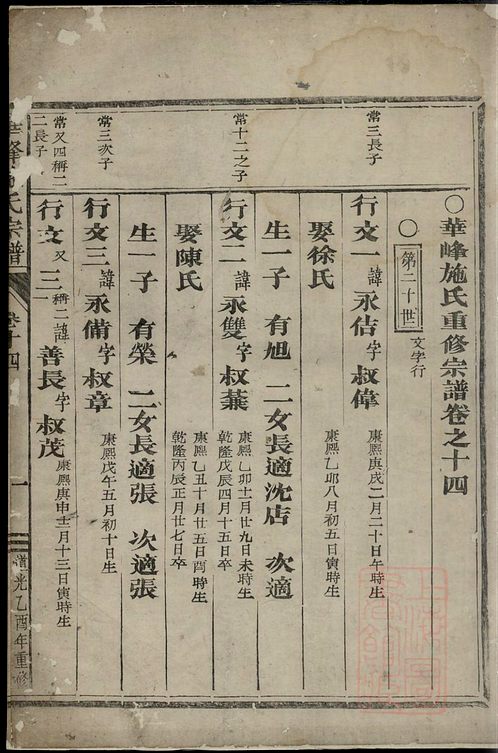 ○華峰施氏重修宗譜卷之十四
○第二十世 文字行
常三長子
行文一 諱永佶字叔偉 康熙庚戌二月二十日午時生
娶徐氏 康熙乙卯八月初五日寅時生
生一子 有旭 二女長適沈店 次適
常十二之子
行文二 諱永雙字叔蕪 康熙乙卯十二月廿九日未時生 乾隆戊辰四月十五日卒
娶陳氏 康熙乙丑十月廿五日酉時生 乾隆丙辰正月廿七日卒
生一子 有榮 二女長適張 次適張
常三次子
行文三 諱永備字叔章 康熙戊午五月初十日生
常又四稱二
二長子
行文又三 稱二諱善長字叔茂 康熙庚申十二月十三日寅時生
華峰施氏宗譜 卷十四 一 道光乙酉年重修